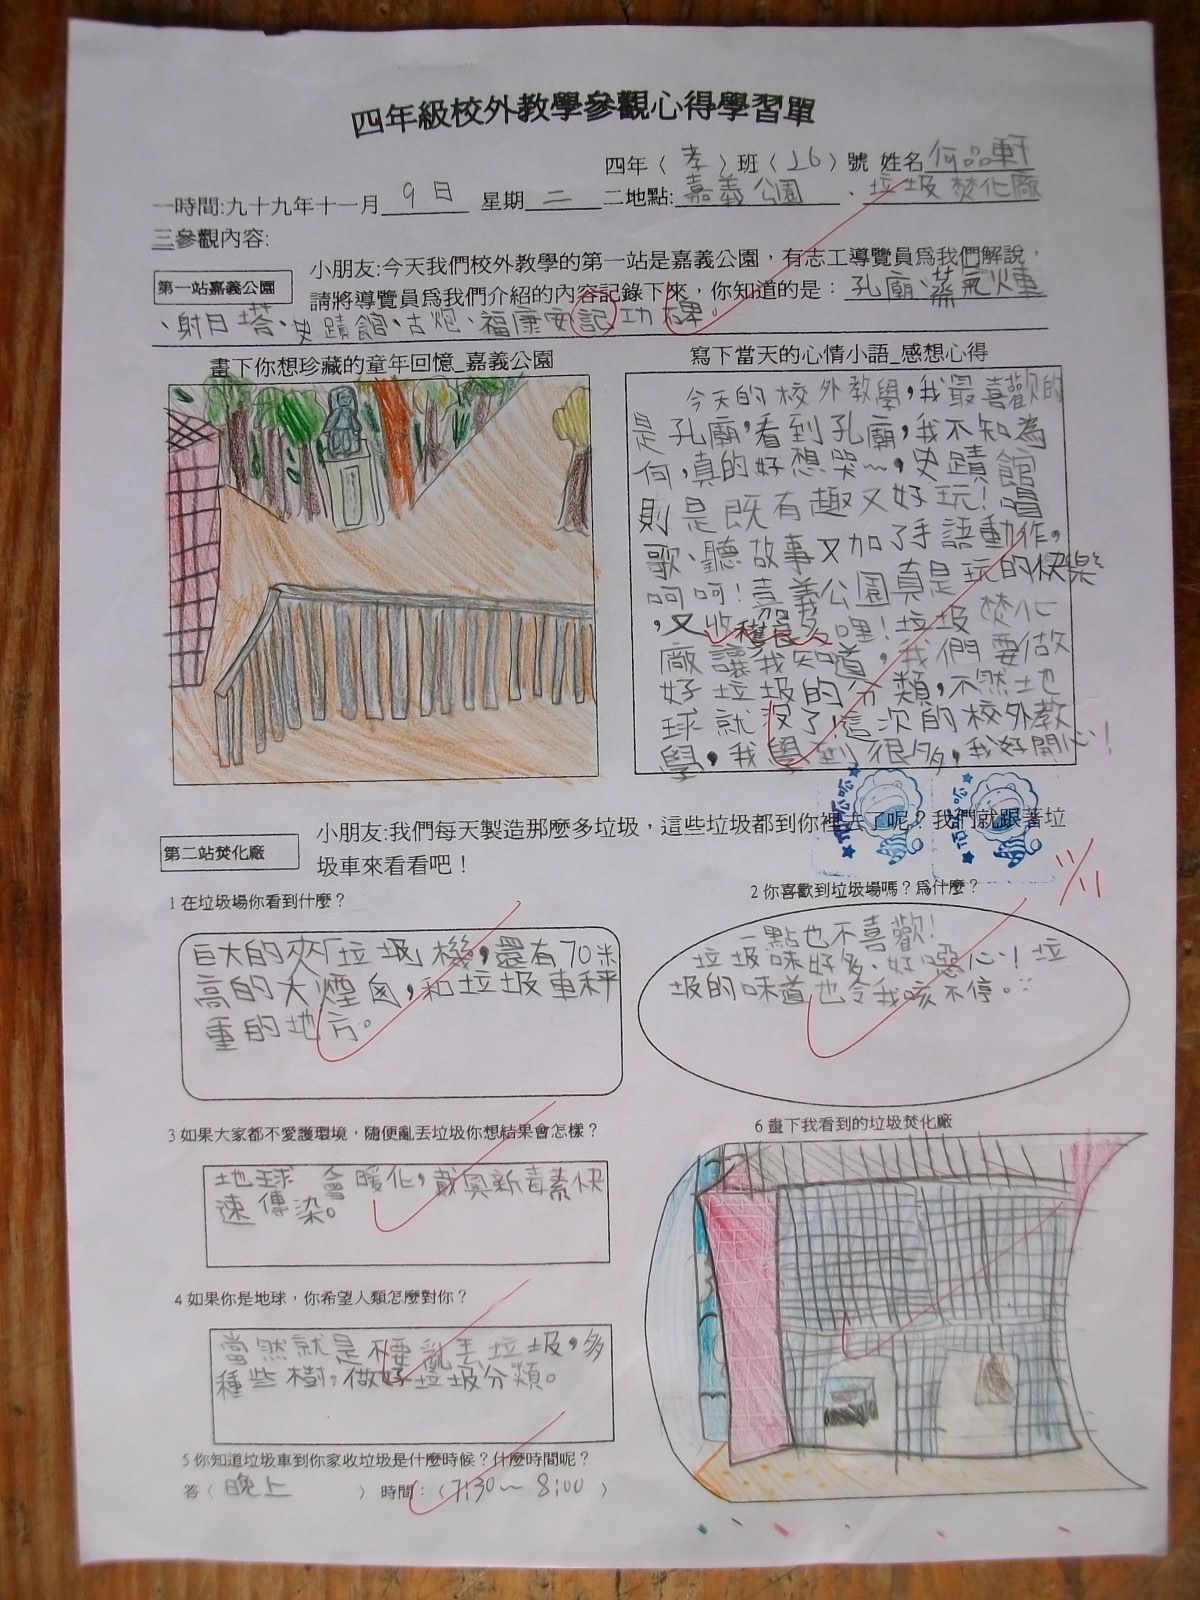 四年級校外教學參觀心得學習單
四年（孝）班（26）號 姓名 何品軒
一時間:九十九年十一月 9日 星期 二 二地點: 嘉義公園 、垃圾焚化廠
三參觀內容:
第一站嘉義公園
小朋友:今天我們校外教學的第一站是嘉義公園，有志工導覽員為我們解說，
請將導覽員為我們介紹的內容記錄下來，你知道的是：孔廟、蒸氣火車
、射日塔、史蹟館、古炮、福康安記功碑。
畫下你想珍藏的童年回憶_嘉義公園
寫下當天的心情小語_感想心得
今天的校外教學，我最喜歡的
是孔廟，看到孔廟，我不知為
何，真的好想哭~，史蹟館
則是既有趣又好玩！唱
歌、聽故事又加了手語動作，
呵呵！嘉義公園真是玩的快樂
，又收穫良多哩！垃圾焚化
廠讓我知道，我們要做
好垃圾的分類，不然地
球就沒了！這次的校外教
學，我學到很多，我好開心！
第二站焚化廠
小朋友:我們每天製造那麼多垃圾，這些垃圾都到你裡去了呢？我們就跟著垃
圾車來看看吧！
11/11
1 在垃圾場你看到什麼？
巨大的夾「垃圾」機，還有70米
高的大煙囪，和垃圾車秤
重的地方。
2 你喜歡到垃圾場嗎？為什麼？
一點也不喜歡！
垃圾味好多、好噁心！垃
圾的味道也令我咳不停。
3 如果大家都不愛護環境，隨便亂丟垃圾你想結果會怎樣？
地球會暖化，戴奧新毒素快
速傳染。
4 如果你是地球，你希望人類怎麼對你？
當然就是不要亂丟垃圾，多
種些樹，做好垃圾分類。
5 你知道垃圾車到你家收垃圾是什麼時候？什麼時間呢？
答（晚上） 時間：（7:30~8:00）
6 畫下我看到的垃圾焚化廠